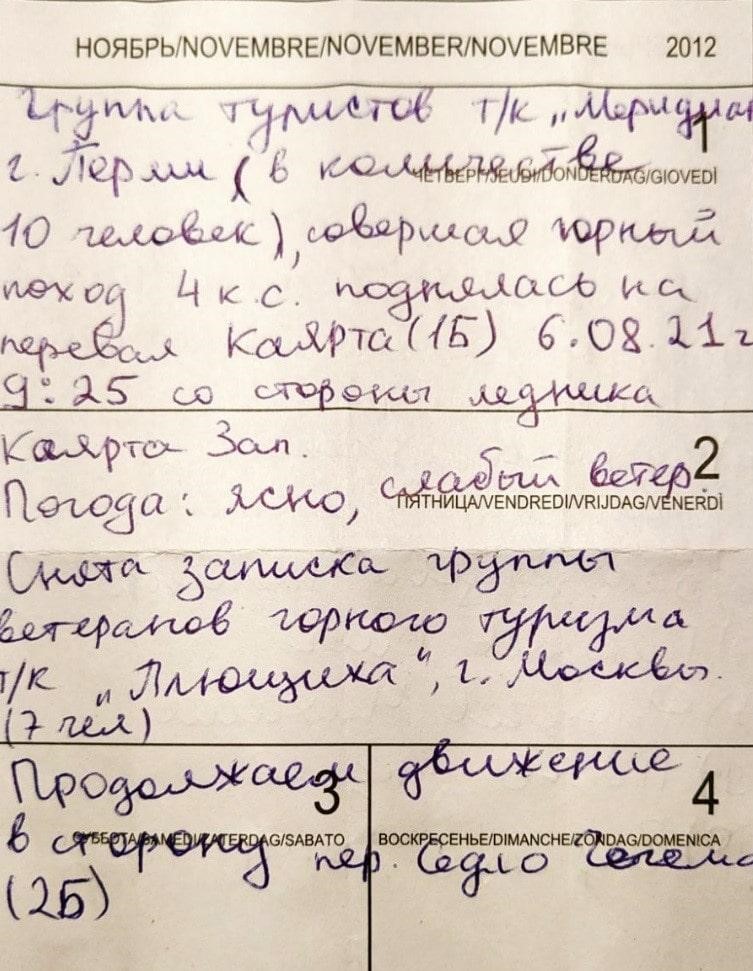 НОЯБРЬ/NOVEMBRE/NOVEMBER/NOVEMBRE 2012
Группа туристов т/к „Меридиан
1
г. Перми (в количестве
ЧЕТВЕРГ/JEUDI/DONDERDAG/GIOVEDÌ
10 человек), совершая горный
поход 4 к.с. поднялась на
перевал Каярта (1Б) 6.08.21 г
9:25 со стороны ледника
Каярта Зап.
2
Погода: ясно, слабый ветер.
ПЯТНИЦА/VENDREDI/VRIJDAG/VENERDÌ
Снята записка группы
ветеранов горного туризма
т/к „Плющиха“, г. Москвы.
(7 чел)
Продолжаем движение
3 4
СУББОТА/SAMEDI/ZATERDAG/SABATO ВОСКРЕСЕНЬЕ/DIMANCHE/ZONDAG/DOMENICA
в сторону пер. Седло Чегема
(2Б)